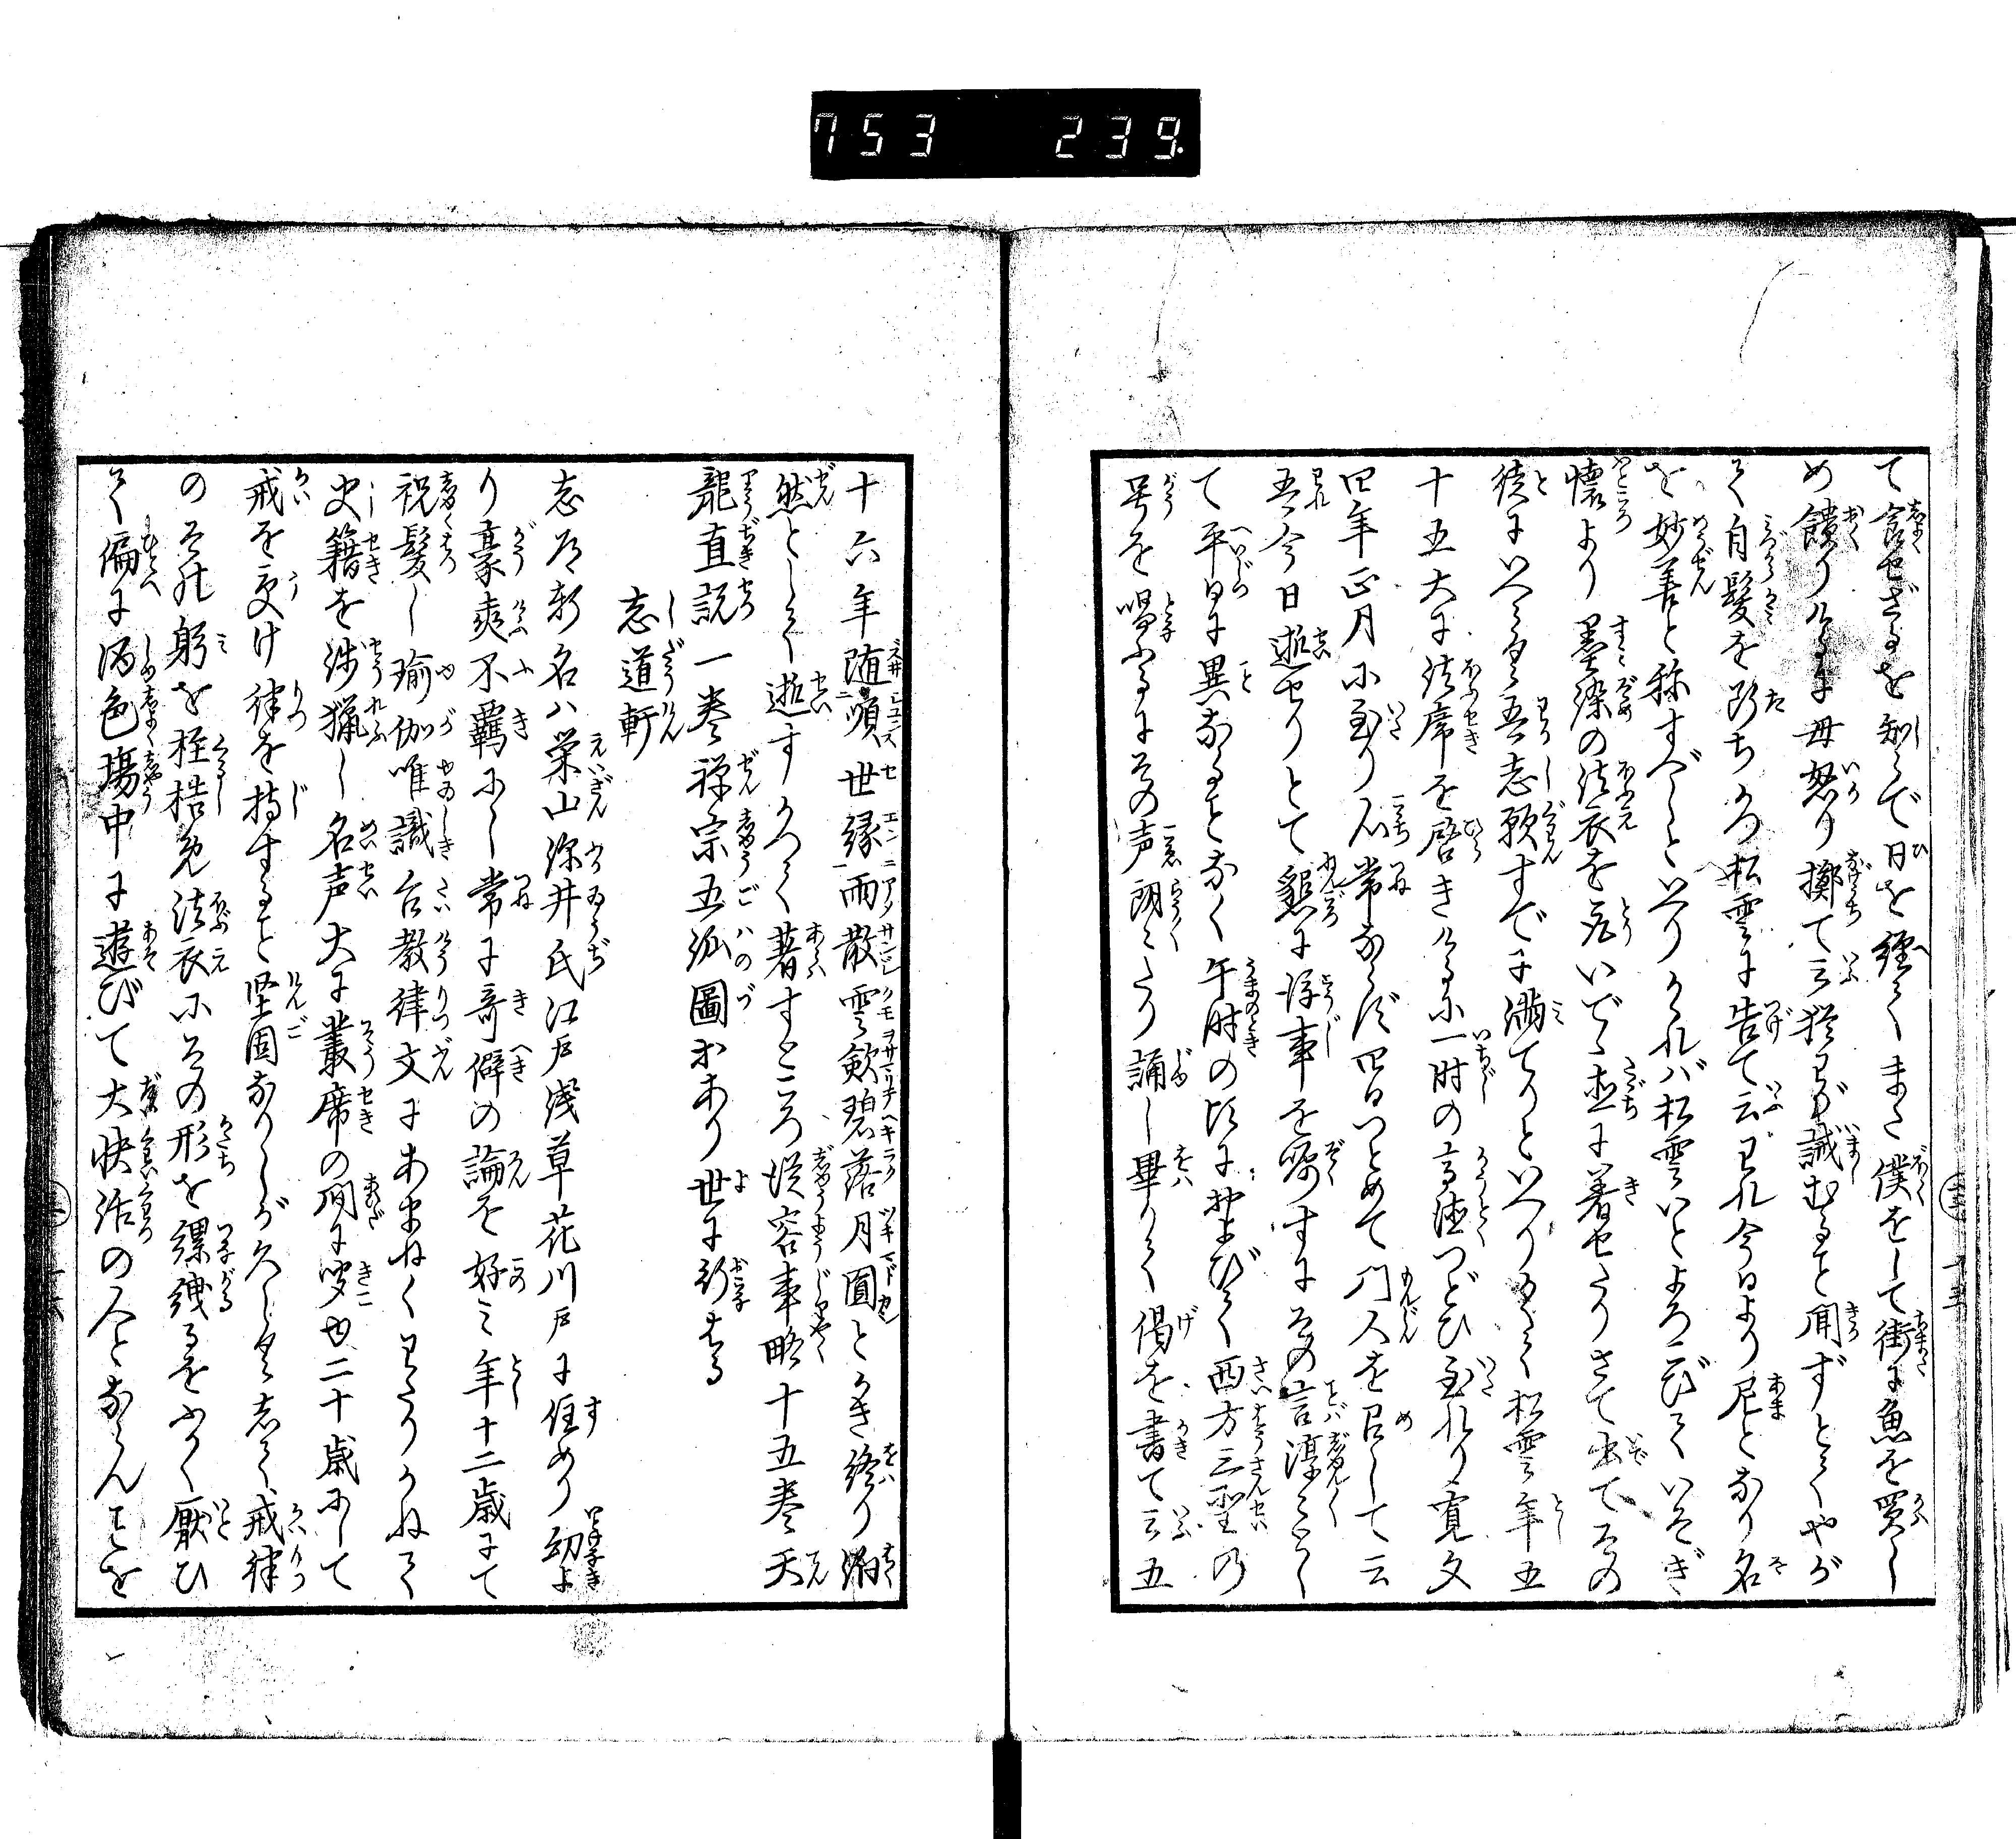 753 239
て食せざるを知らで日を経てまた僕をして街に魚を買し
め饋りけるに母怒り擲て云猶わが誡むるを聞ずとてやが
て自髪を断ちかつ松雲に告て云われ今日より尼となり名
を妙善と称すべしといひければ松雲いとよろこびていそぎ
懐より墨染の法衣を取いでゝ直に着せたりさて出てその
徒にいへらく吾志願すでに満てりといへりかくて松雲年五
十五大に法席を啓きけるに一時の高徳つどひ至れり寛文
四年正月に至り心常ならず四日つとめて門人を召して云
吾今日逝せりとて懇に浮事を嘱すにその言諄々として
て平日に異なることなく午時の比におよびて西方三聖の
号を唱ふるにその声朗々たり誦し畢りて偈を書て云五
十六年随順世縁雨散雲歛碧落月圓とかき終り溘
然として逝すかつて著すところ従容事略十五巻天
龍直説一巻禅宗五派圖おあり世に行はる
志道軒
志道軒名ハ栄山深井氏江戸浅草花川戸に住めり幼よ
り豪爽不羈にし常に奇僻の論を好み年十二歳にて
祝髪し瑜伽唯識台教律文にあまねくわたりかねて
史籍を渉猟し名声大に叢席の間に聞ゆ二十歳にして
戒を受け律を持すること堅固なりしが久しうして戒律
のその躬を桎梏免法衣にその形を縲絏るをふかく厭ひ
て偏に酒色場中に遊びて大快活の人とならんことを